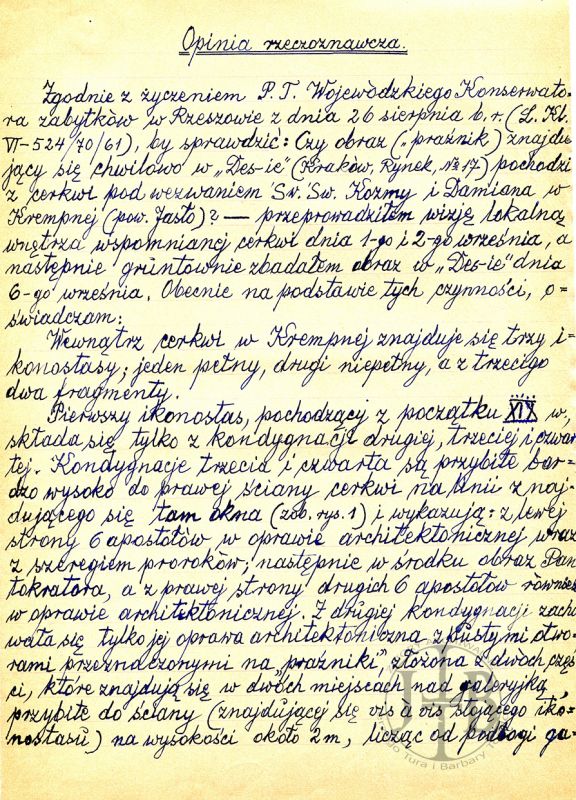 Opinia rzeczoznawcza.
Zgodnie z życzeniem P.T. Wojewódzkiego Konserwato-
ra zabytków w Rzeszowie z dnia 26 sierpnia b.r. (L. Kl.
VI-524/70/61), by sprawdzić: Czy obraz („praźnik") znajdu-
jący się chwilowo w „Des-ie" (Kraków, Rynek, № 17) pochodzi
z cerkwi pod wezwaniem Św. Św. Kozmy i Damiana w
Krempnej (pow. Jasło)? — przeprowadziłem wizję lokalną
wnętrza wspomnianej cerkwi dnia 1-go i 2-go września, a
następnie gruntownie zbadałem obraz w „Des-ie" dnia
6-go września. Obecnie na podstawie tych czynności, o-
świadczam:
Wewnątrz cerkwi w Krempnej znajduje się trzy i-
konostasy; jeden pełny, drugi niepełny, a z trzeciego
dwa fragmenty.
Pierwszy ikonostas, pochodzący z początku XIX w,
składa się tylko z kondygnacji drugiej, trzeciej i czwar
tej. Kondygnacje trzecia i czwarta są przybite bar-
dzo wysoko do prawej ściany cerkwi na linii znaj-
dującego się tam okna (zob. rys. 1) i wykazują: z lewej
strony 6 apostołów w oprawie architektonicznej wraz
z szeregiem proroków; następnie w środku obraz Pan
tokratora, a z prawej strony drugich 6 apostołów również
w oprawie architektonicznej. Z drugiej kondygnacji zacho
wała się tylko jej oprawa architektoniczna z pustymi otwo-
rami przeznaczonymi na „praźniki", złożona z dwóch częś
ci, które znajdują się w dwóch miejscach nad galeryjką,
przybite do ściany (znajdującej się vis à vis stojącego iko-
nostasu) na wysokości około 2m, licząc od podłogi ga-
JTB
Tura i Barbary